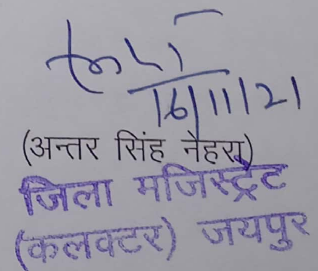 16/11/21
(अन्तर सिंह नैहरा)
जिला मजिस्ट्रेट
(कलक्टर) जयपुर